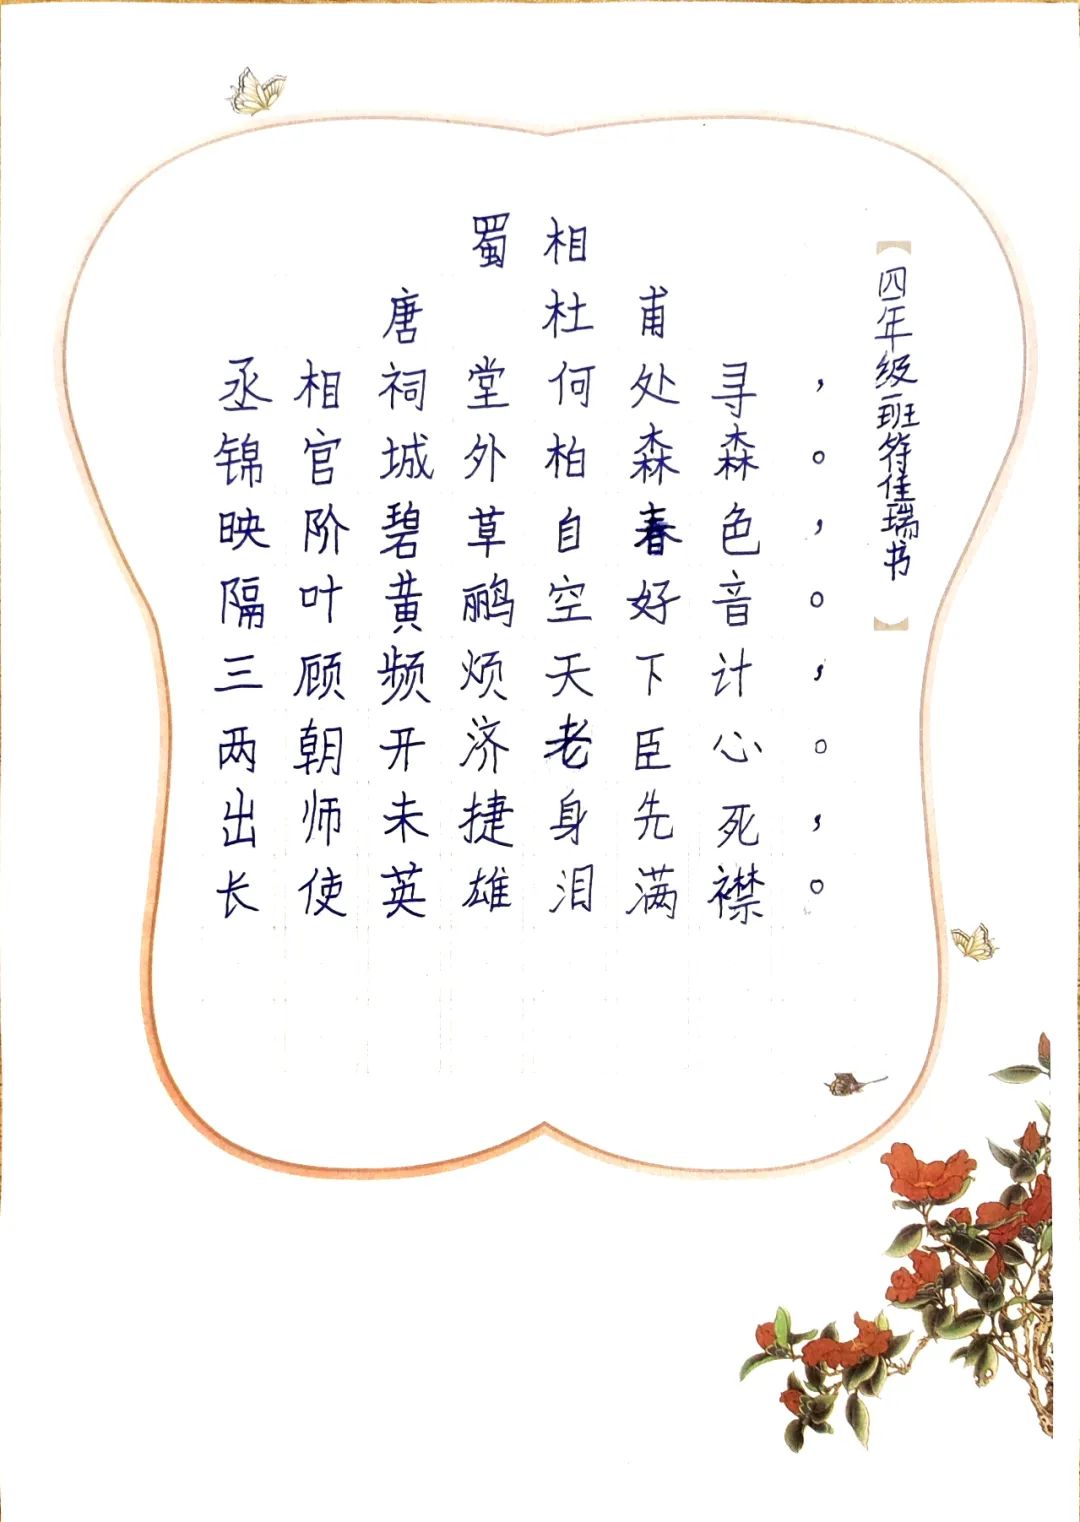 蜀相
唐 杜甫
丞相祠堂何处寻，
锦官城外柏森森。
映阶碧草自春色，
隔叶黄鹂空好音。
三顾频烦天下计，
两朝开济老臣心。
出师未捷身先死，
长使英雄泪满襟。
【四年级一班符佳瑞书】